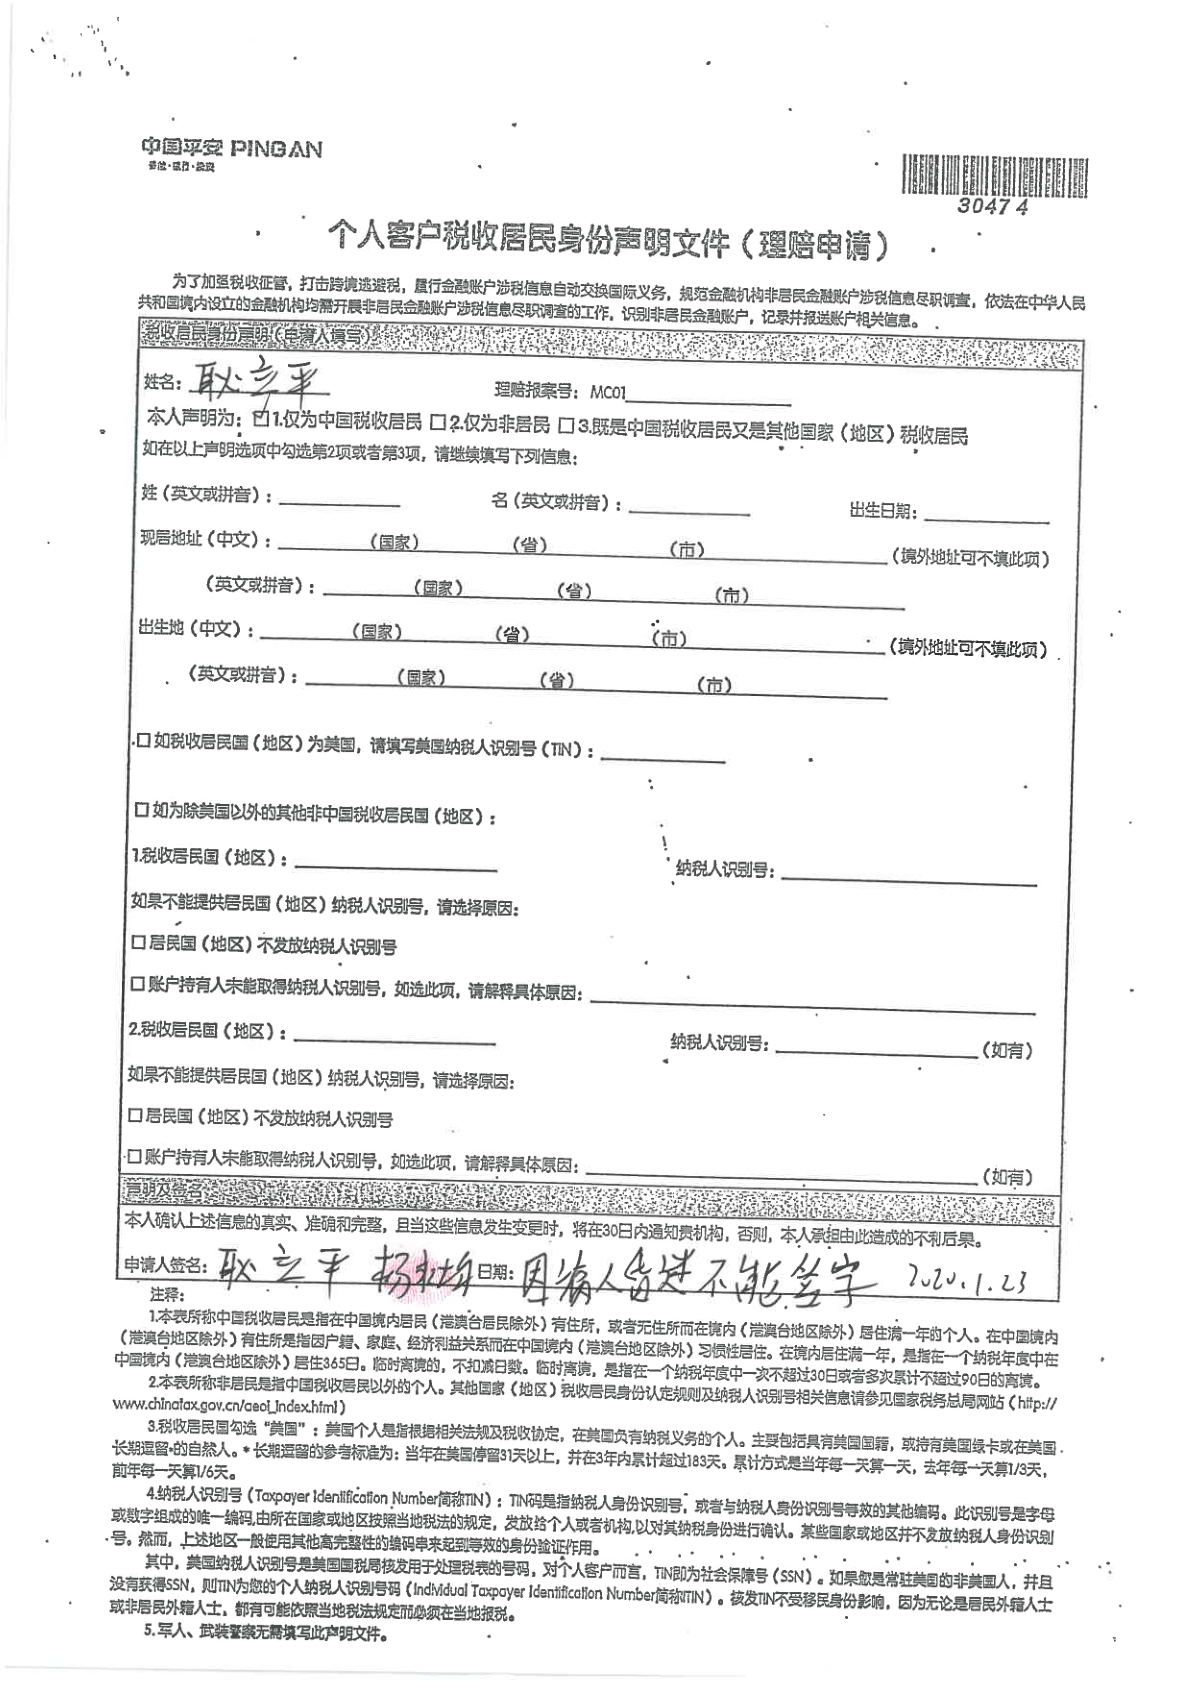 中国平安 PINGAN
金融·科技
30474
个人客户税收居民身份声明文件（理赔申请）
为了加强税收征管，打击跨境逃避税，履行金融账户涉税信息自动交换国际义务，规范金融机构非居民金融账户涉税信息尽职调查，依法在中华人民
共和国境内设立的金融机构均需开展非居民金融账户涉税信息尽职调查的工作，识别非居民金融账户，记录并报送账户相关信息。
税收居民身份声明（申请人填写）
姓名：耿立平 理赔报案号：MC01
本人声明为：☑1.仅为中国税收居民 □2.仅为非居民 □3.既是中国税收居民又是其他国家（地区）税收居民
如在以上声明选项中勾选第2项或者第3项，请继续填写下列信息：
姓（英文或拼音）： 名（英文或拼音）： 出生日期：
现居地址（中文）： （国家） （省） （市） （境外地址可不填此项）
（英文或拼音）： （国家） （省） （市）
出生地（中文）： （国家） （省） （市） （境外地址可不填此项）
（英文或拼音）： （国家） （省） （市）
□如税收居民国（地区）为美国，请填写美国纳税人识别号（TIN）：
□如为除美国以外的其他非中国税收居民国（地区）：
1.税收居民国（地区）： 纳税人识别号：
如果不能提供居民国（地区）纳税人识别号，请选择原因：
□居民国（地区）不发放纳税人识别号
□账户持有人未能取得纳税人识别号，如选此项，请解释具体原因：
2.税收居民国（地区）： 纳税人识别号： （如有）
如果不能提供居民国（地区）纳税人识别号，请选择原因：
□居民国（地区）不发放纳税人识别号
□账户持有人未能取得纳税人识别号，如选此项，请解释具体原因： （如有）
声明及签名
本人确认上述信息的真实、准确和完整，且当这些信息发生变更时，将在30日内通知贵机构，否则，本人承担由此造成的不利后果。
申请人签名：耿立平 杨 日期：因病人昏迷不能签字 2020.1.23
注释：
1.本表所称中国税收居民是指在中国境内居民（港澳台居民除外）有住所，或者无住所而在境内（港澳台地区除外）居住满一年的个人。在中国境内
（港澳台地区除外）有住所是指因户籍、家庭、经济利益关系而在中国境内（港澳台地区除外）习惯性居住。在境内居住满一年，是指在一个纳税年度中在
中国境内（港澳台地区除外）居住365日。临时离境的，不扣减日数。临时离境，是指在一个纳税年度中一次不超过30日或者多次累计不超过90日的离境。
2.本表所称非居民是指中国税收居民以外的个人。其他国家（地区）税收居民身份认定规则及纳税人识别号相关信息请参见国家税务总局网站（http://
www.chinatax.gov.cn/aeoi_index.html）
3.税收居民国勾选“美国”：美国个人是指根据相关法规及税收协定，在美国负有纳税义务的个人。主要包括具有美国国籍，或持有美国绿卡或在美国
长期逗留*的自然人。*长期逗留的参考标准为：当年在美国停留31天以上，并在3年内累计超过183天。累计方式是当年每一天算一天，去年每一天算1/3天，
前年每一天算1/6天。
4.纳税人识别号（Taxpayer Identification Number简称TIN）：TIN码是指纳税人身份识别号，或者与纳税人身份识别号等效的其他编码。此识别号是字母
或数字组成的唯一编码，由所在国家或地区按照当地税法的规定，发放给个人或者机构，以对其纳税身份进行确认。某些国家或地区并不发放纳税人身份识别
号。然而，上述地区一般使用其他高完整性的编码串来起到等效的身份验证作用。
其中，美国纳税人识别号是美国国税局核发用于处理税表的号码，对个人客户而言，TIN即为社会保障号（SSN）。如果您是常驻美国的非美国人，并且
没有获得SSN，则TIN为您的个人纳税人识别号码（Individual Taxpayer Identification Number简称ITIN）。核发TIN不受移民身份影响，因为无论是居民外籍人士
或非居民外籍人士，都有可能依照当地税法规定而必须在当地报税。
5.军人、武装警察无需填写此声明文件。